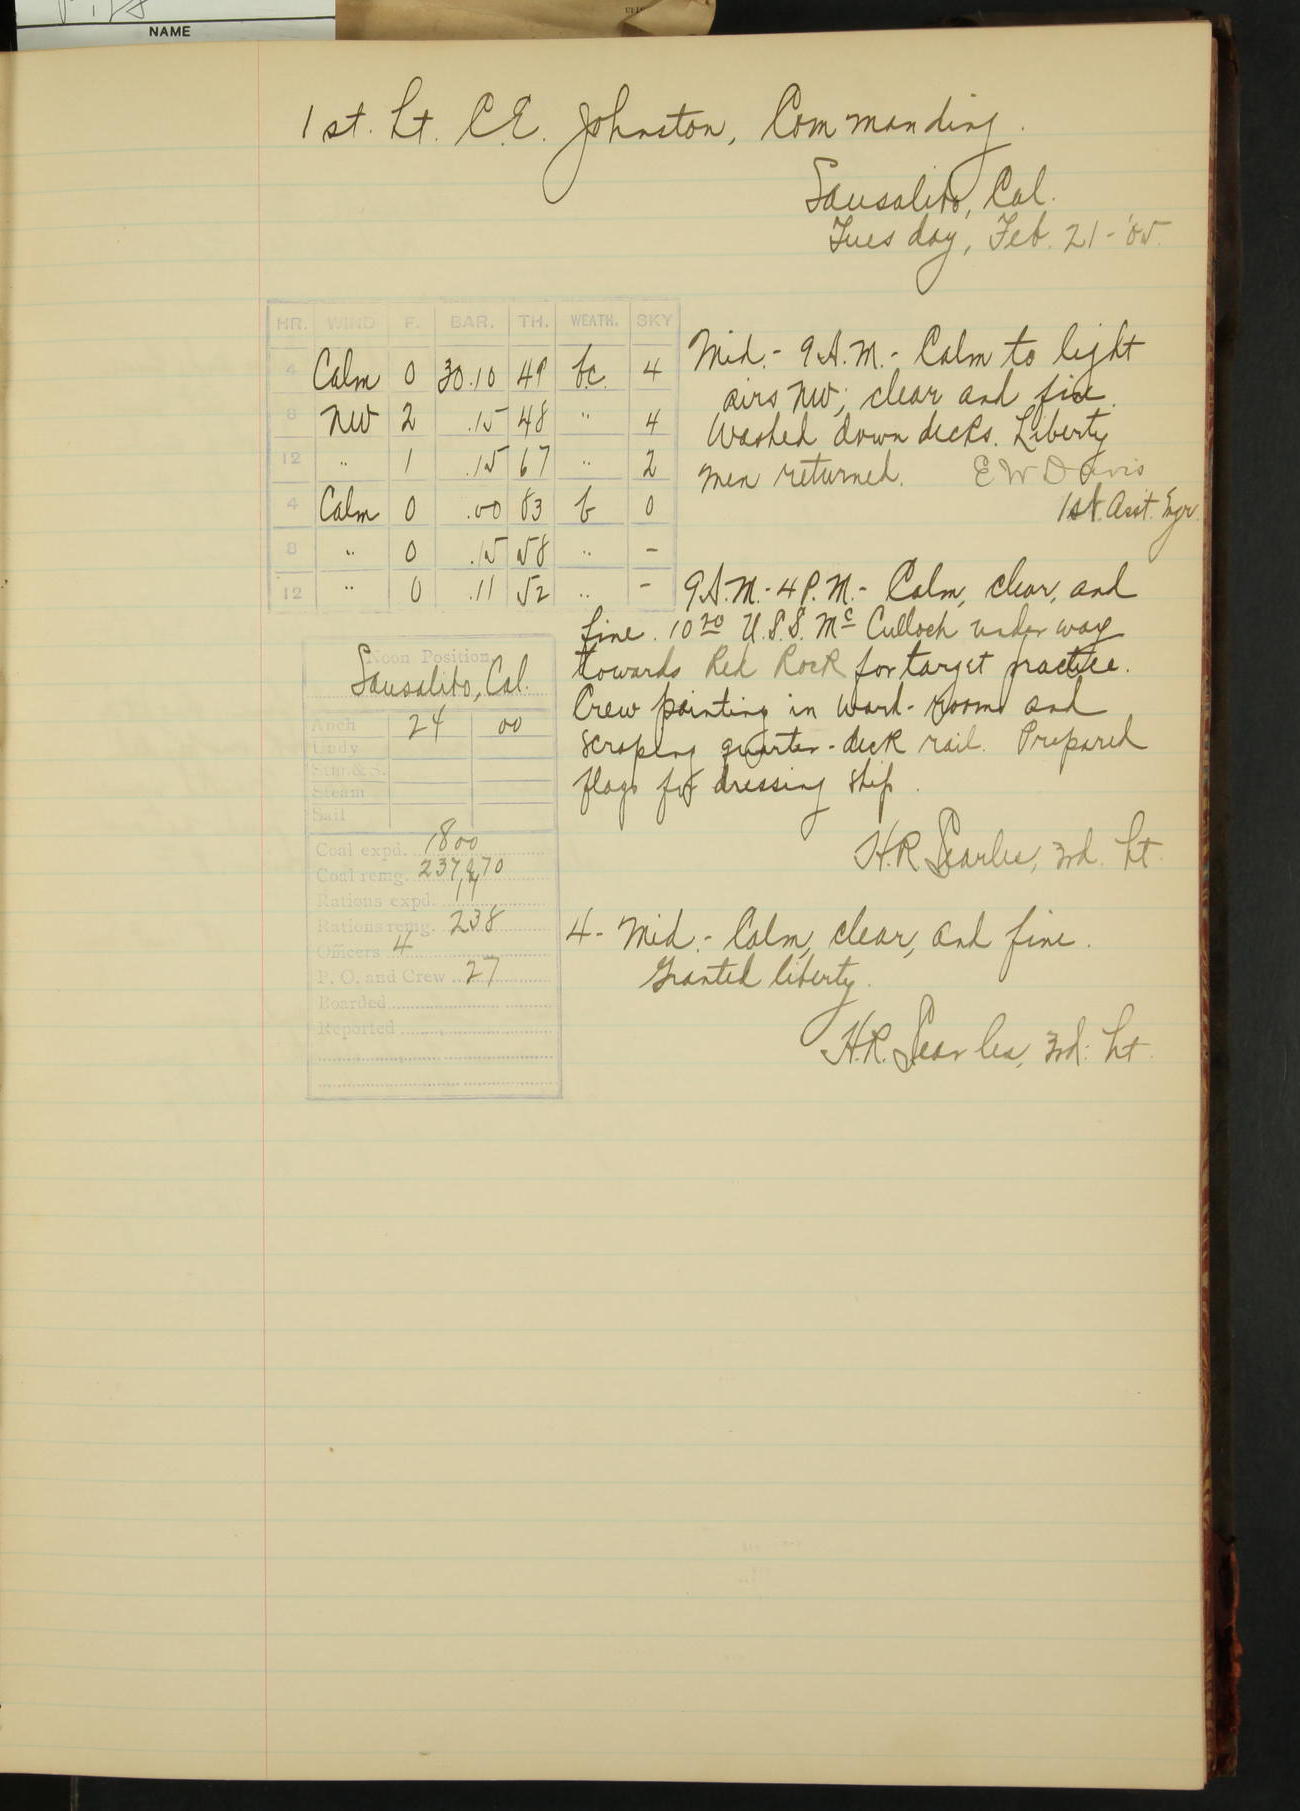 NAME
1st. Lt. C.E. Johnston, Commanding.
Sausalito, Cal.
Tuesday, Feb. 21-'05.
HR. WIND F. BAR. TH. WEATH. SKY
4 Calm 0 30.10 49 bc. 4
8 NW 2 .15 48 " 4
12 " 1 .15 67 " 2
4 Calm 0 .00 83 b 0
8 " 0 .15 58 " -
12 " 0 .11 52 " -
Mid.- 9A.M.- Calm to light
airs NW; clear and fine.
Washed down decks. Liberty
men returned. E W Davis
1st. Asst. Engr.
9A.M.-4P.M.- Calm, clear, and
fine. 10 20 U.S.S. McCulloch under way
towards Red Rock for target practice.
Crew painting in ward-room and
scraping quarter-deck rail. Prepared
flags for dressing ship.
H.R. Searles, 3rd. Lt.
4- Mid.- Calm, clear, and fine.
Granted liberty.
H.R. Searles, 3rd. Lt.
Noon Position
Sausalito, Cal.
Anch 24 00
Undy
Stm.& S.
Steam
Sail
Coal expd. 1800
Coal remg. 237,870
Rations expd. 14
Rations remg. 238
Officers 4
P. O. and Crew 27
Boarded
Reported